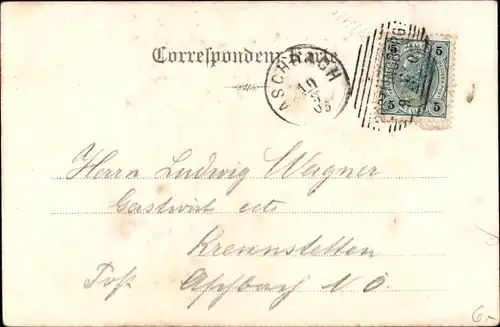 Correspondenz-Karte
ASCHBACH
5 5
5 5
Herrn Ludwig Wagner
Gastwirt etc
Krennstetten
Post Aschbach N.O.
6.-